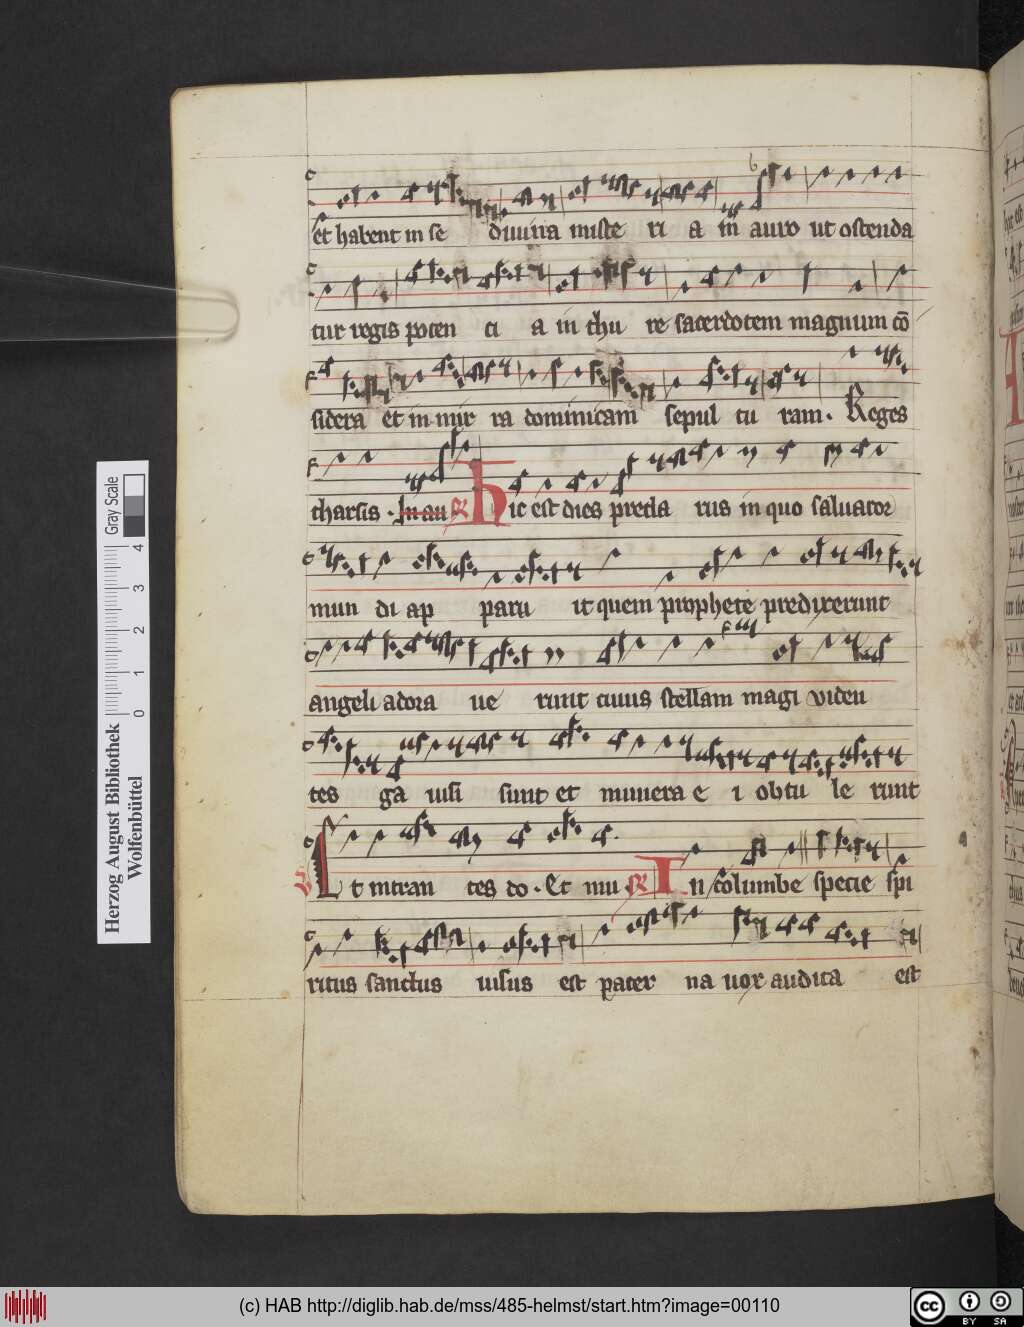 et habent in se diuina miste ri a in auro ut ostenda
tur regis poten ci a in thu re sacerdotem magnum cō
sidera et in mir ra dominicam sepul tu ram. Reges
tharsis. In au R Hic est dies precla rus in quo saluator
mun di ap paru it quem prophete predixerunt
angeli adora ue runt cuius stellam magi viden
tes ga uisi sunt et munera e i obtu le runt
V Et intran tes do. Et mu R In columbe specie spi
ritus sanctus uisus est pater na uox audita est
Herzog August Bibliothek
Wolfenbüttel
0 1 2 3 4
Gray Scale
(c) HAB http://diglib.hab.de/mss/485-helmst/start.htm?image=00110
cc BY SA